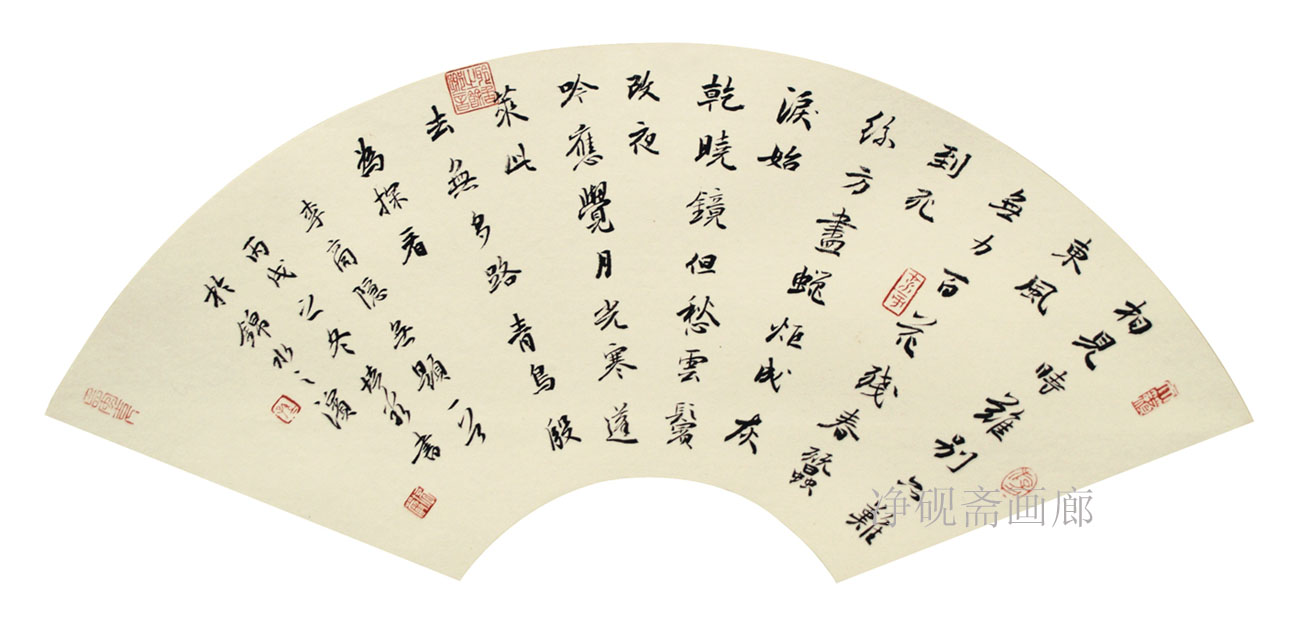 相見時難別亦難
東風
無力百花殘春蠶
到死
絲方盡蠟炬成灰
淚始
乾曉鏡但愁雲鬢
改夜
吟應覺月光寒蓬
萊此
去無多路青鳥殷
為探看
李商隱無題一首
丙戌之冬書
於錦水之濱
净砚斋画廊